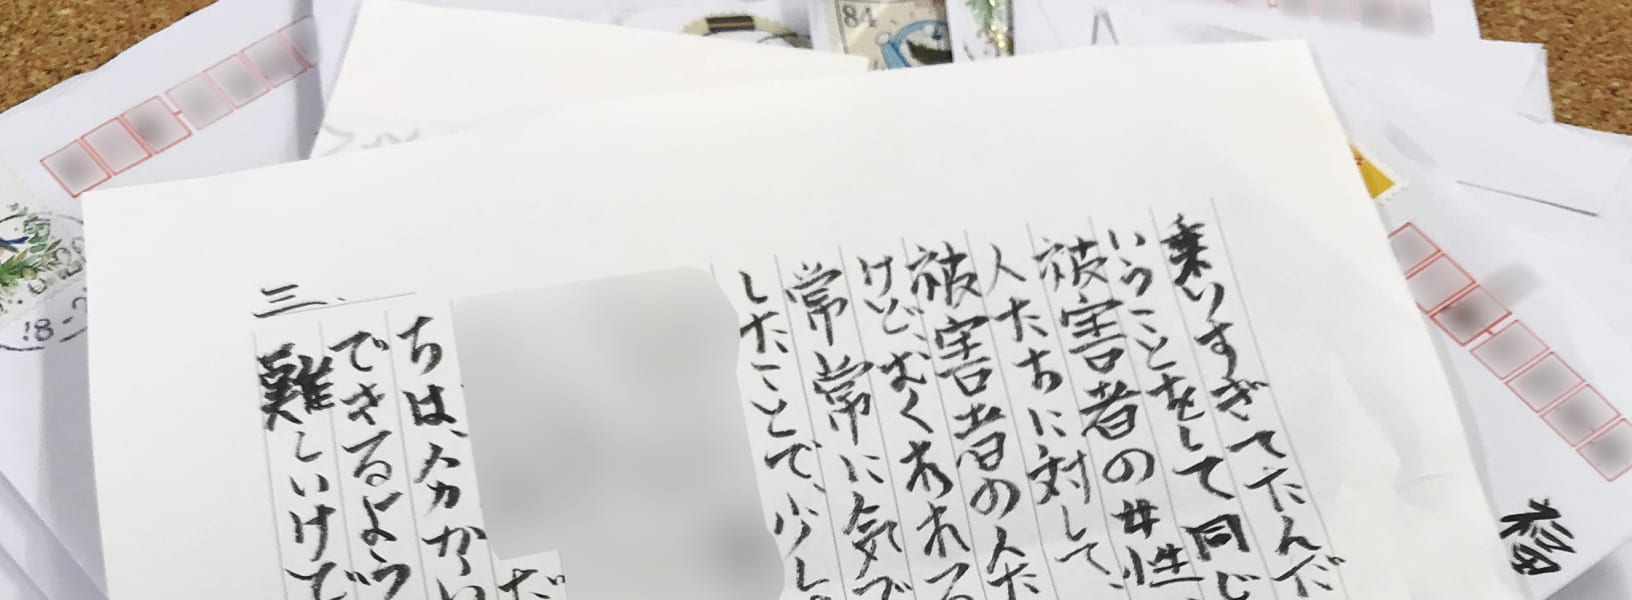 乗りすぎてたんだ
いうことをして同じ
被害者の女性
人たちに対して、
被害者の人た
けど、むくわれる
常常に気
したことで、少し
だ
ちは、分かい
できるよう
三、
難しいけど
84
18